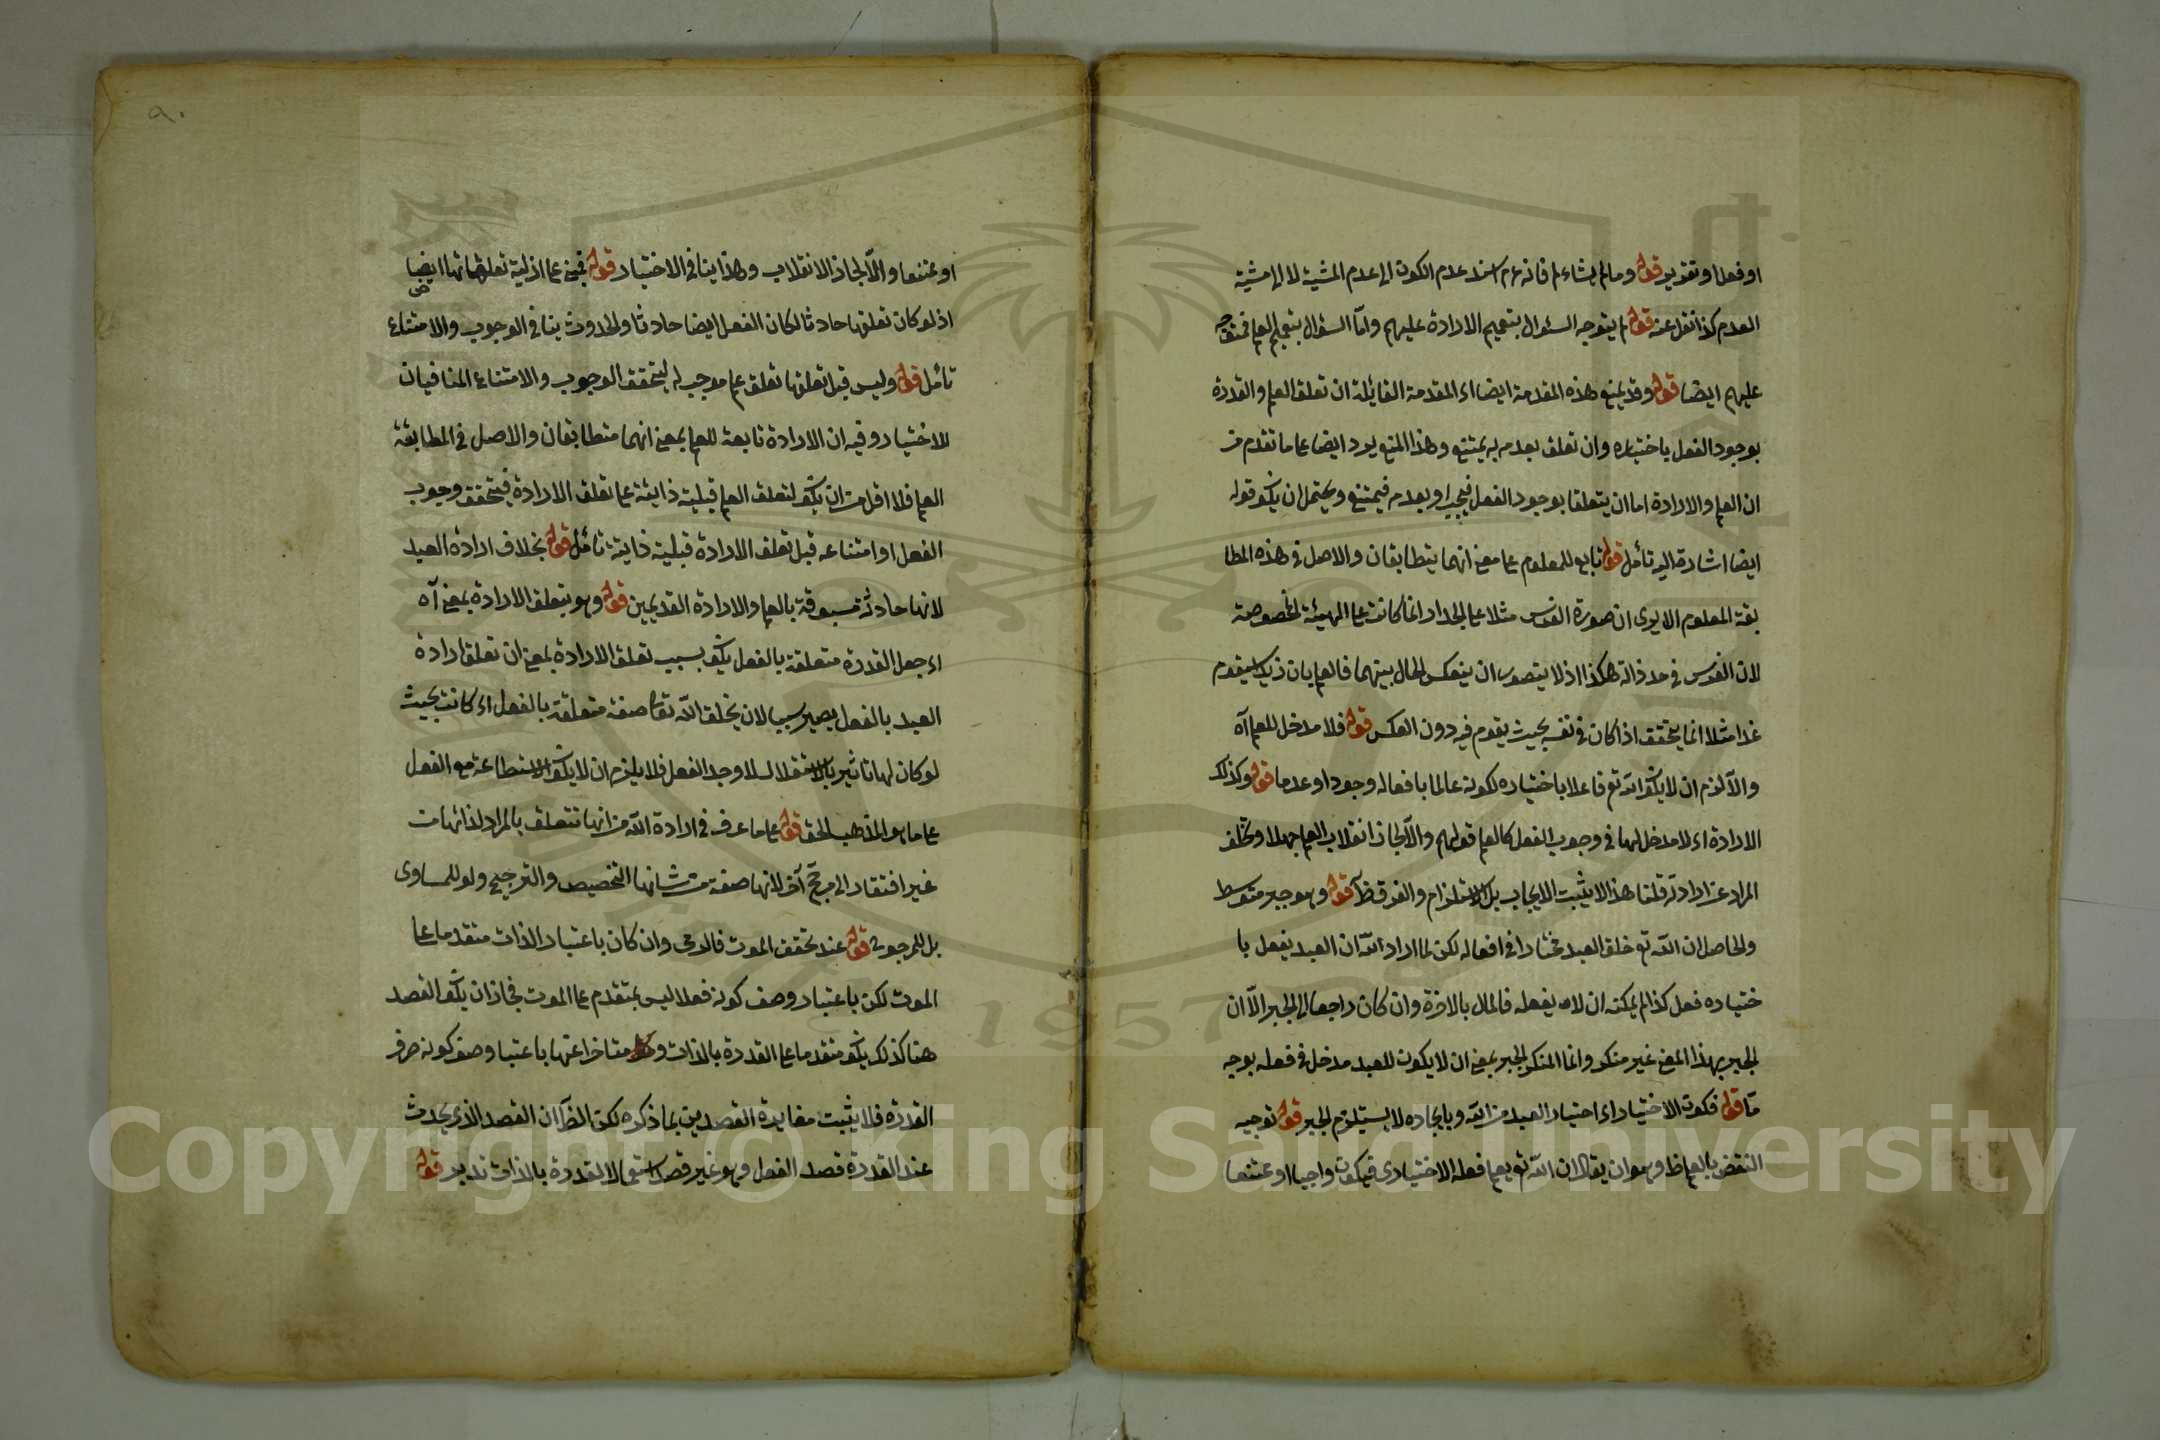 او فعلا وتقدير قوله وما لم يشأ لم فانه م اسند عدم الكون الى عدم المشية لا الى مشية
العدم كذا نقل عنه قوله لم يتوجه السئوال بتعميم الارادة عليهم واما السؤال بتعميم العلم فمتوجه
عليهم ايضا قوله وقد يمنع هذه المقدمة ايضا اى المقدمة القايلة ان تعلق العلم والقدرة
بوجود الفعل باختياره وان تعلق بعدمه يمتنع وهذا المنع يرد ايضا على ما تقدم من
ان العلم والارادة اما ان يتعلقا بوجود الفعل فيجب او بعدمه فيمتنع ويحتمل ان يكون قوله
ايضا اشارة اليه تأمل قوله تابع للمعلوم على معنى انهما يتطابقان والاصل فى هذه المطا
بقة المعلوم الا يرى ان صورة الفرس مثلا على الجدار انما كانت على الهيئة المخصوصة
لان الفرس فى حد ذاته هكذا اذ لا يتصور ان ينعكس الحال بينهما فالعلم بان زيدا سيقوم
غدا مثلا انما يتحقق اذا كان فى نفسه بحيث يقوم فيه دون العكس قوله فلا مدخل للعلم آه
والا لزم ان لا يكون الله تع فاعلا باختياره لكونه عالما بافعاله وجودا وعدما قوله وكذلك
الارادة اى لا مدخل لها فى وجوب الفعل كالعلم قولهم والا لجاز انقلاب العلم جهلا وتخلف
المراد عن ارادته قلنا هذا لا يثبت الايجاب بل الاستلزام والفرق ظ قوله وهو جبر متوسط
والحاصل ان الله تع خلق العبد مختارا فى افعاله لكن لما اراد الله ان العبد يفعل با
ختياره فعل كذا لم يمكنه ان لا يفعله فالمال بالاخرة وان كان راجعا الى الجبر الا ان
الجبر بهذا المعنى غير منكر وانما المنكر الجبر بمعنى ان لا يكون للعبد مدخل فى فعله بوجه
ما قوله فكون الاختيار اى اختيار العبد من الله وبايجاده لا يستلزم الجبر قوله توجيه
النقض بالعلم ظ وهو ان يقال ان الله تع يعلم فعله الاختيارى فيكون واجبا او ممتنعا
٩٠
او ممتنعا والا لجاز الانقلاب وهذا ينافى الاختيار قوله فمبنى على ازلية تعلقاتها ايضا
اذ لو كان تعلقها حادثا لكان الفعل ايضا حادثا والحدوث ينافى الوجوب والامتناع
تأمل قوله وليس قبل تعلقها تعلق علم موجب له ليتحقق الوجوب والامتناع المنافيان
للاختيار وفيه ان الارادة تابعة للعلم بمعنى انهما متطابقان والاصل فى المطابقة
العلم فلا اقل من ان يكون لتعلق العلم قبلية ذاتية على تعلق الارادة فيتحقق وجوب
الفعل او امتناعه قبل تعلق الارادة قبلية ذاتية تأمل قوله بخلاف ارادة العبد
لانها حادثة مسبوقة بالعلم والارادة القديمين قوله وهو يتعلق الارادة بمعنى آه
اى جعل القدرة متعلقة بالفعل يكون بسبب تعلق الارادة بمعنى ان تعلق ارادة
العبد بالفعل يصير سببا لان يخلق الله تعالى صفة متعلقة بالفعل اى كانت بحيث
لو كان لها تاثير بالاستقلال لاوجد الفعل فلا يلزم ان لا يكون الاستطاعة مع الفعل
على ما هو المذهب الحق قوله على ما عرف فى ارادة الله من انها تتعلق بالمراد لذاتها من
غير افتقار الى مرجح آخر لانها صفة من شانها التخصيص والترجيح ولو للمساوى
بل للمرجوح قوله عند تحقق الموت فالرمى وان كان باعتبار الذات متقدما على
الموت لكن باعتبار وصف كونه فعلا ليس بمتقدم على الموت فجاز ان يكون القصد
هنا كذلك يكون متقدما على القدرة بالذات و متاخرا عنها باعتبار وصف كونه صرف
القدرة فلا يثبت مغايرة القصدين بما ذكره لكن الظ ان القصد الذى يحدث
عند القدرة قصد الفعل وهو غير قصد استعمال القدرة بالذات تدبر قوله
Copyright © King Saud University
1957